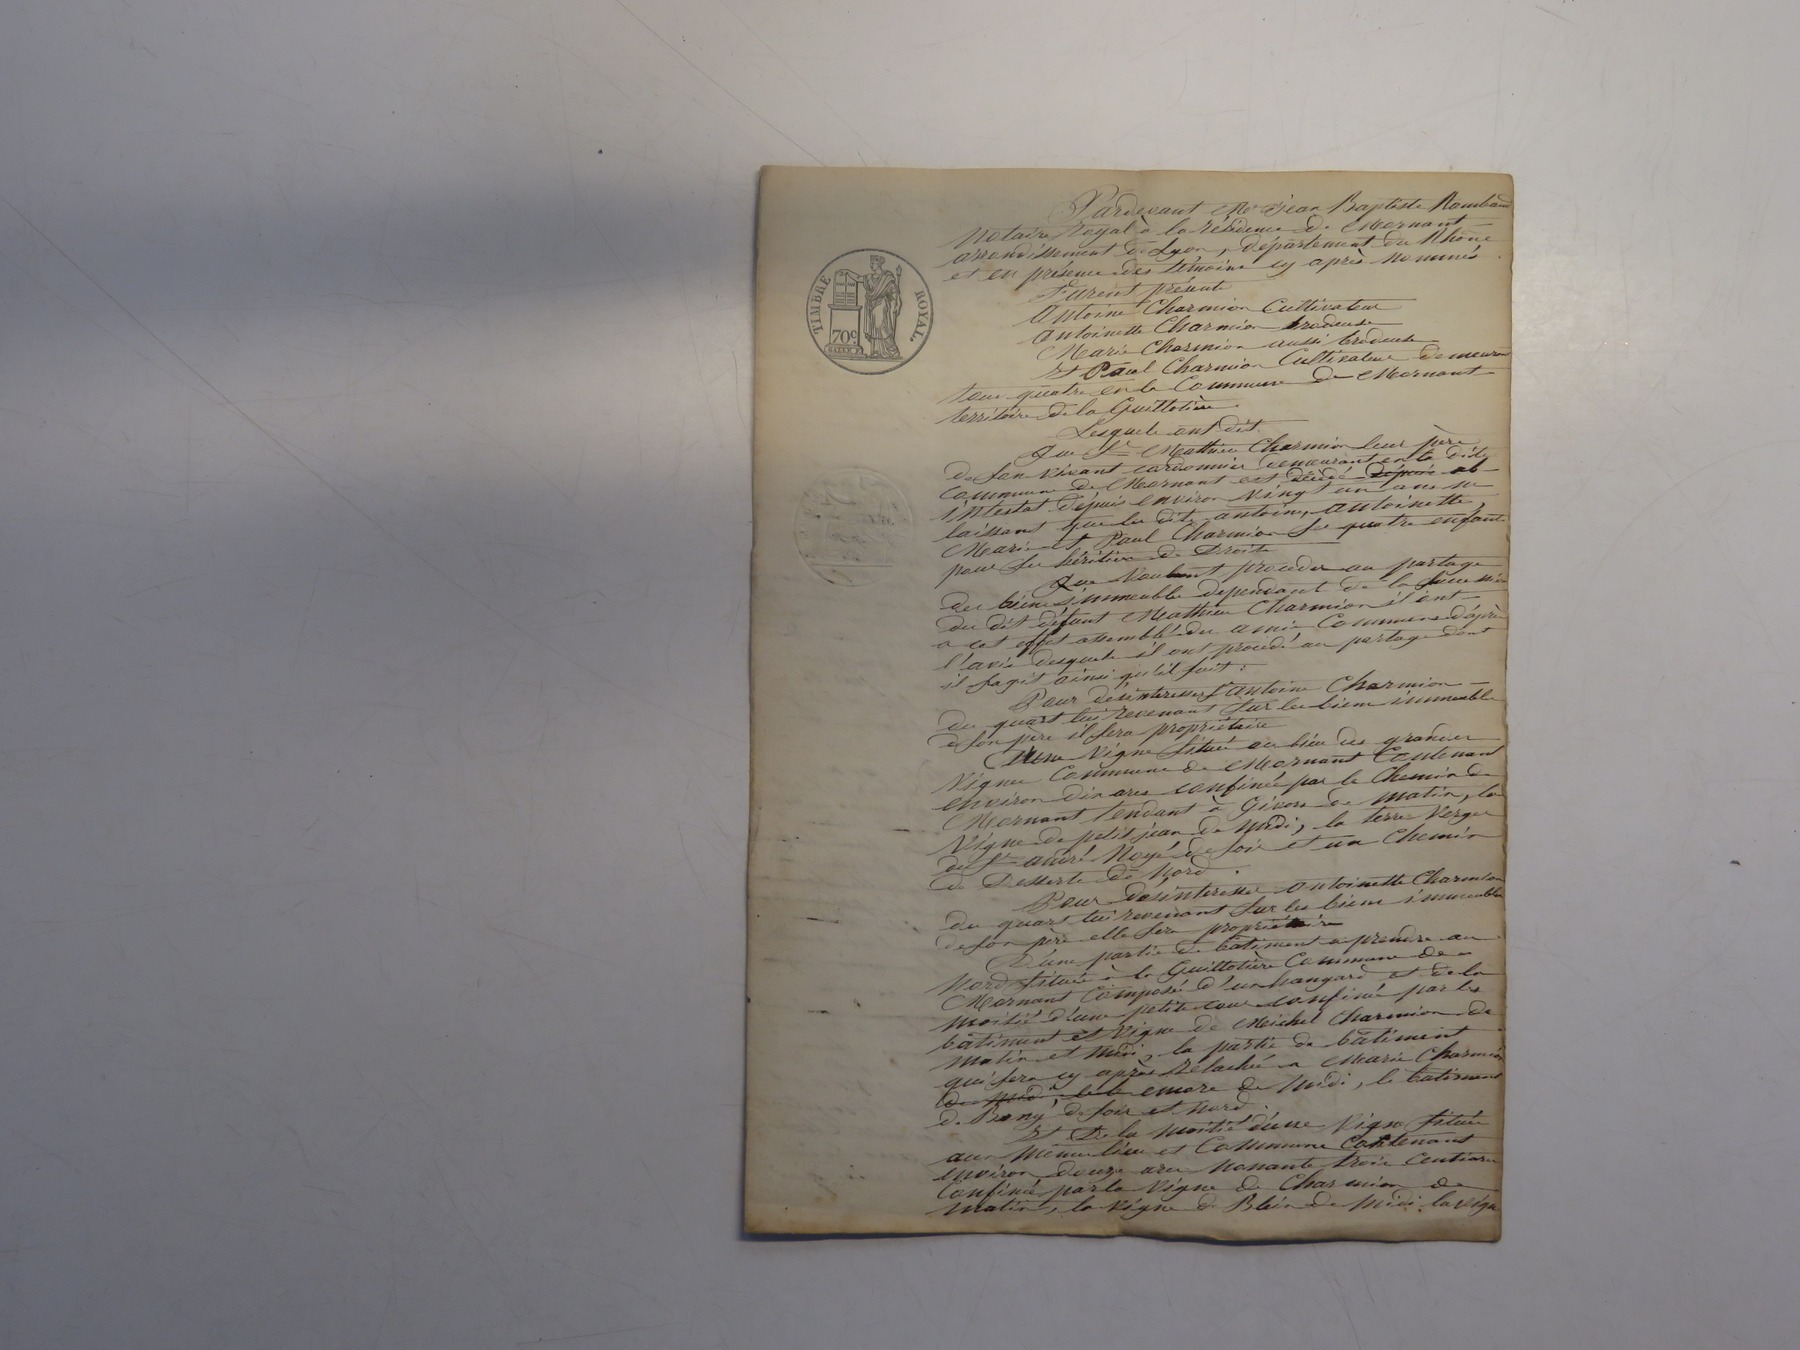 TIMBRE ROYAL.
70c
Pardevant Me Jean Baptiste Rambaud
Notaire Royal à la résidence de Mornant
arrondissement de Lyon, département du Rhône
et en présence des témoins cy après nommés.
Furent présents
Antoine Charmion Cultivateur
Antoinette Charmion brodeuse
Marie Charmion aussi brodeuse
Et Paul Charmion Cultivateur demeurant
tous quatre en la Commune de Mornant
territoire de la Guillotière.
Lesquels ont dit
Que Sr Mathieu Charmion leur père
de son vivant cordonnier demeurant en la dite
commune de Mornant est décédé depuis ab
intestat depuis environ vingt un ans ne
laissant que les dits antoine, antoinette,
Marie et Paul Charmion ses quatre enfants
pour ses héritiers de Droits
Que Voulant procéder au partage
des biens immeubles dépendant de la succession
du dit défunt Mathieu Charmion ils ont
a cet effet assemblé des amis Communs d'après
l'avis desquels ils ont procédé au partage dont
il s'agit ainsi qu'il suit :
Pour désintéresser Sr Antoine Charmion
du quart lui revenant sur les biens immeubles
de son père il sera propriétaire
D'une Vigne située au lieu des grandes
Vignes Commune de Mornant Contenant
environ dix ares confinée par le Chemin de
Mornant tendant à Givors de matin, la
Vigne de petit jean de Midi, la terre Verger
de Sr andré Noyé de soir et un Chemin
de Desserte de Nord.
Pour désintéresser Antoinette Charmion
du quart lui revenant sur les biens immeubles
de son père elle sera propriétaire
D'une partie de bâtiment a prendre au
Nord située à la Guillotière Commune de
Mornant Composé d'un hangard et de la
moitié d'une petite cour confiné par les
bâtiment et Vigne de Michel Charmion de
matin et midi, la partie de bâtiment
qui sera cy après relachée a Marie Charmion
encore de Midi, le batiment
de Bony de soir et nord.
Et De la moitié d'une Vigne située
aux même lieu et Commune Contenant
environ douze ares Nonante trois Centiares
Confinée par la Vigne de Charmion de
matin, la Vigne de Blein de Midi la Vigne